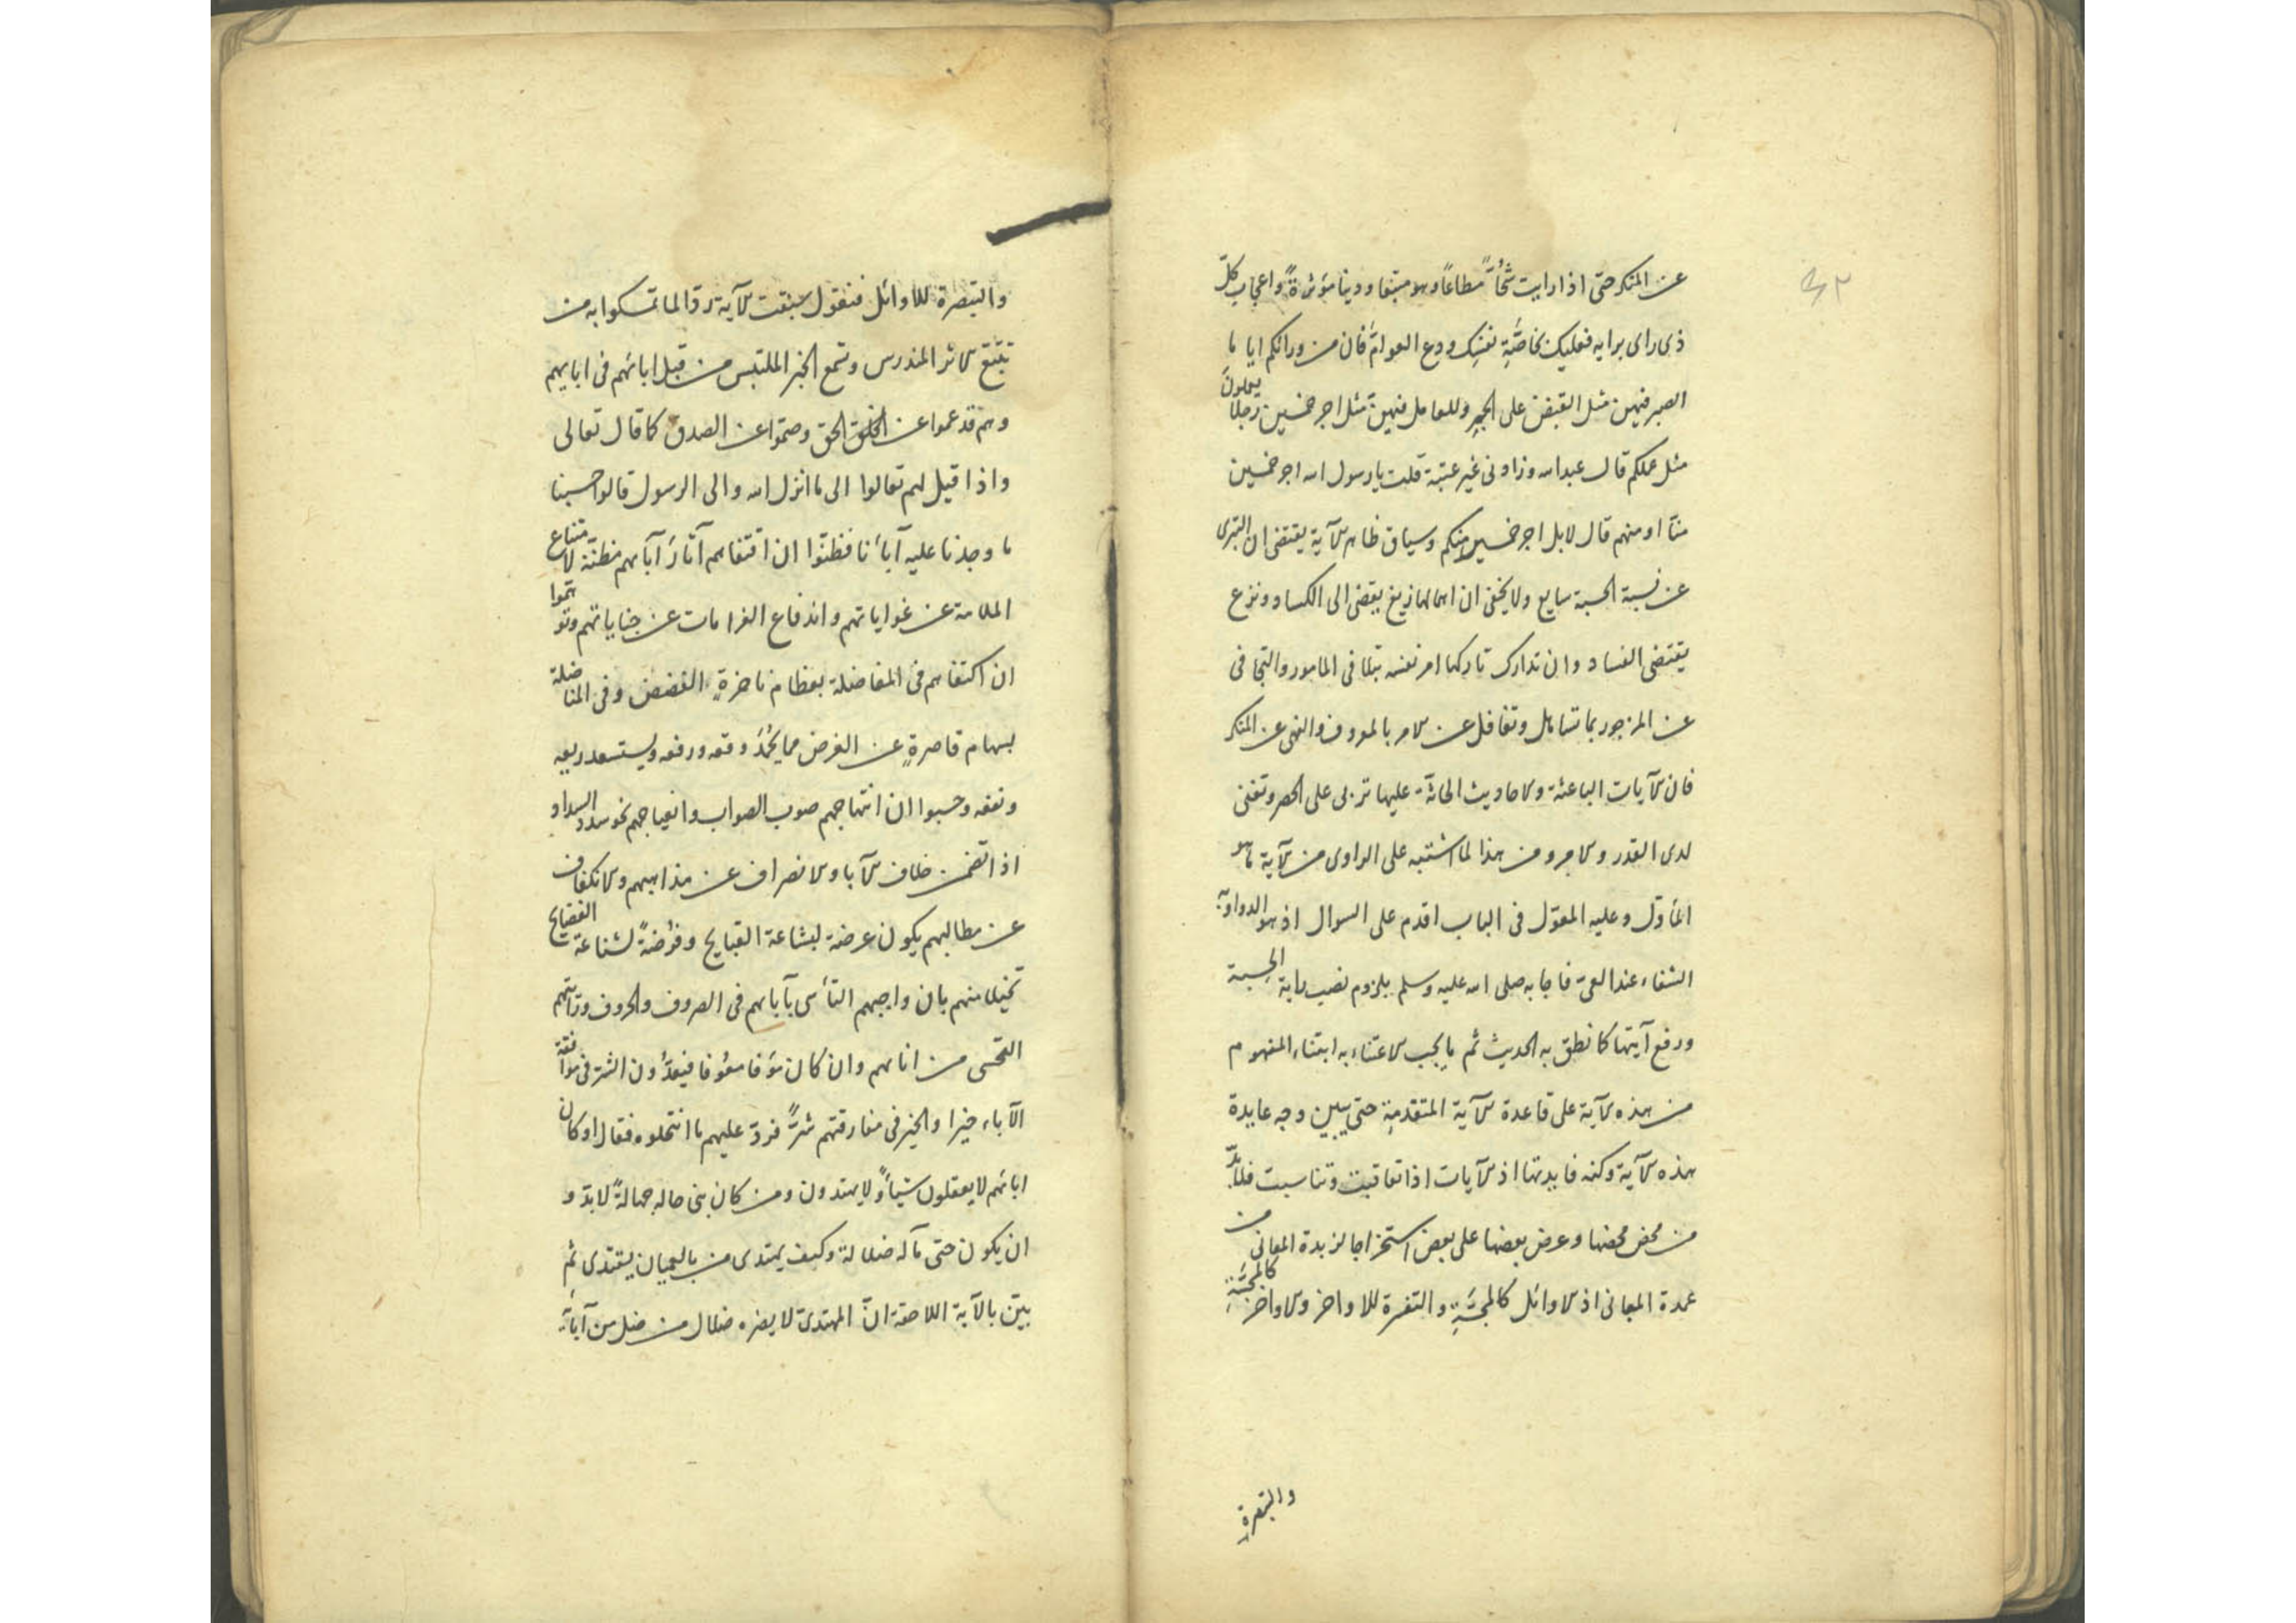 عن المنكر حتى اذا رايت شحّاً مطاعاً وهو متبعا ودنيا مؤثرةً واعجاب كلّ
ذى راى برايه فعليك بخاصّةِ نفسِك ودع العوامّ فان من ورائكم اياما
الصبر فيهن مثل القبض على الجمر وللعامل فيهنّ مثل اجر خمسين رجلا يعملون
مثل عملكم قال عبدالله وزادنى غير عتبة قلت يا رسول الله اجر خمسين
منّا او منهم قال لا بل اجر خمسين منكم وسياق ظاهر الآية يقتضى ان التبرى
عن نسبة الحسبة سايغ ولا يخفى ان اهمالها زيغ يفضى الى الكساد ونزغ
يقتضى الفساد وان تدارك تاركها امر نفسه بتلافى المامور والتجافى
عن المزجور بما تساهل وتغافل عن الامر بالمعروف والنهى عن المنكر
فان الآيات الباعثة والاحاديث الحاثّة عليها تربى على الحصر وتفنى
لدى القدر والامر ومن هذا لما اشتبه على الراوى من الآية ما هو
المأوّل وعليه المعوّل فى الباب اقدم على السوال اذ هو الدواء و
الشفاء عند العى فاجابه صلى الله عليه وسلم بلزوم نصب راية الحسبة
ورفع آيتها كما نطق به الحديث ثم ما يجب الاعتناء به ابتناء المفهوم
من هذه الآية على قاعدة الآية المتقدمة حتى يبين وجه عايدة
هذه الآية وكنه فايدتها اذ الآيات اذا تعاقبت وتناسبت فلا بدّ
من مخض محضها وعرض بعضها على بعض استخراجا لزبدة المعانى من
عمدة المعانى اذ الاوائل كالمجنّةِ والتفسرة للاواخر والاواخر كالمجسّةِ
والتبصرة
والتبصرة للاوائل فنقول سيقت الآية ردّا لما تمسكوا به من
تتبّع الاثر المندرس وتسمع الخبر الملتبس من قبل ابائهم فى ابايهم
وهم قد عموا عن الخلق الحق وصمّوا عن الصدق كما قال تعالى
واذا قيل لهم تعالوا الى ما انزل الله والى الرسول قالوا حسبنا
ما وجدنا عليه آبأنا فظنّوا ان اقتفاهم آثارَ آبآهم مظنّة لامتناع
الملامة عن غواياتهم واندفاع الغرامات عن جناياتهم وتوهّموا
ان اكتفاهم فى المفاضلة بعظام ناخرةٍ الفضض وفى المناضلة
بسهام قاصرةٍ عن الغرض مما يُحمَدُ وقعه ورفعه ويستسعد ريعه
ونفعه وحسبوا ان انتهاجهم صوب الصواب وانعياجهم نحو سدد السداد
اذا تضمن خلاف الآباء والانصراف عن مذاهبهم والانكفاف
عن مطالبهم يكون عرضة لبشاعة القبايح وفرضةً لشناعة الفضايح
تخيلا منهم بان واجبهم التأسى بآبائهم فى الصروف والحروف وراتبهم
التحسى من انائهم وان كان مؤفا معوفا فيعدّون الشرّ فى موافقة
الآباء خيرا والخير فى مفارقتهم شرًّا فردّ عليهم ما انتحلوه فقال اوكان
اباؤهم لا يعقلون شيأً ولا يهتدون ومن كان بنى حاله جهالةً لا بدّ و
ان يكون حتى مآله ضلالة وكيف يهتدى من بالعميان يقتدى ثم
بيّن بالآية اللاحقة انّ المهتدى لا يضره ضلال من ضل من آبائه